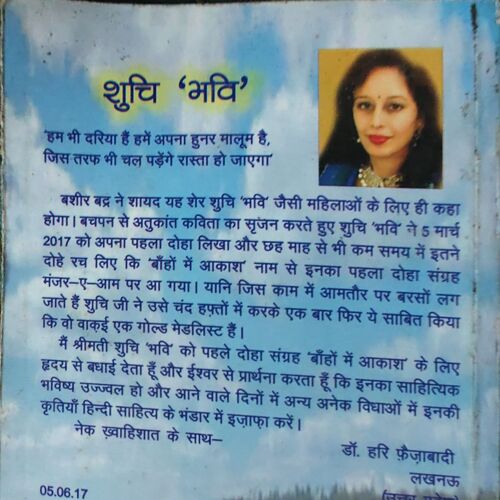 शुचि ‘भवि’
‘हम भी दरिया हैं हमें अपना हुनर मालूम है,
जिस तरफ भी चल पड़ेंगे रास्ता हो जाएगा’
बशीर बद्र ने शायद यह शेर शुचि ‘भवि’ जैसी महिलाओं के लिए ही कहा
होगा। बचपन से अतुकांत कविता का सृजन करते हुए शुचि ‘भवि’ ने 5 मार्च
2017 को अपना पहला दोहा लिखा और छह माह से भी कम समय में इतने
दोहे रच लिए कि ‘बाँहों में आकाश’ नाम से इनका पहला दोहा संग्रह
मंजर–ए–आम पर आ गया। यानि जिस काम में आमतौर पर बरसों लग
जाते हैं शुचि जी ने उसे चंद हफ़्तों में करके एक बार फिर ये साबित किया
कि वो वाक़ई एक गोल्ड मेडलिस्ट हैं।
मैं श्रीमती शुचि ‘भवि’ को पहले दोहा संग्रह ‘बाँहों में आकाश’ के लिए
हृदय से बधाई देता हूँ और ईश्वर से प्रार्थना करता हूँ कि इनका साहित्यिक
भविष्य उज्ज्वल हो और आने वाले दिनों में अन्य अनेक विधाओं में इनकी
कृतियाँ हिन्दी साहित्य के भंडार में इज़ाफ़ा करें।
नेक ख़्वाहिशात के साथ–
डॉ. हरि फ़ैज़ाबादी
लखनऊ
05.06.17